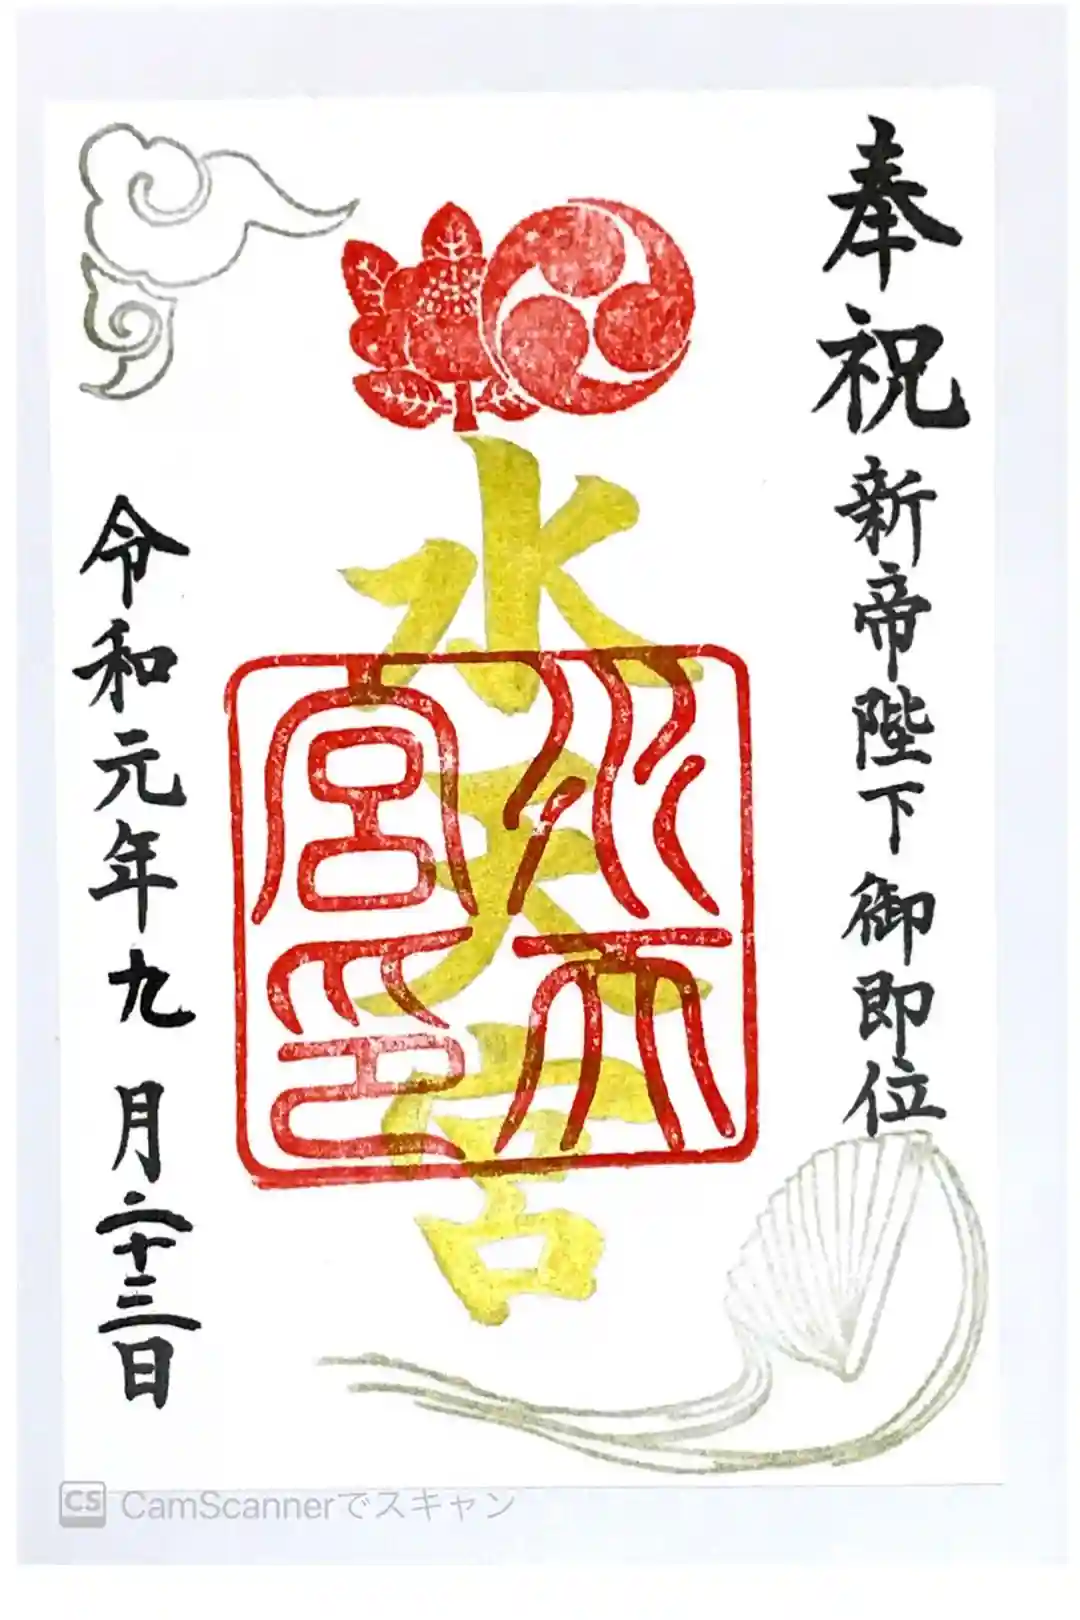 奉祝 新帝陛下 御即位
水天宮
水天宮印
令和元年九月二十三日
CS CamScannerでスキャン